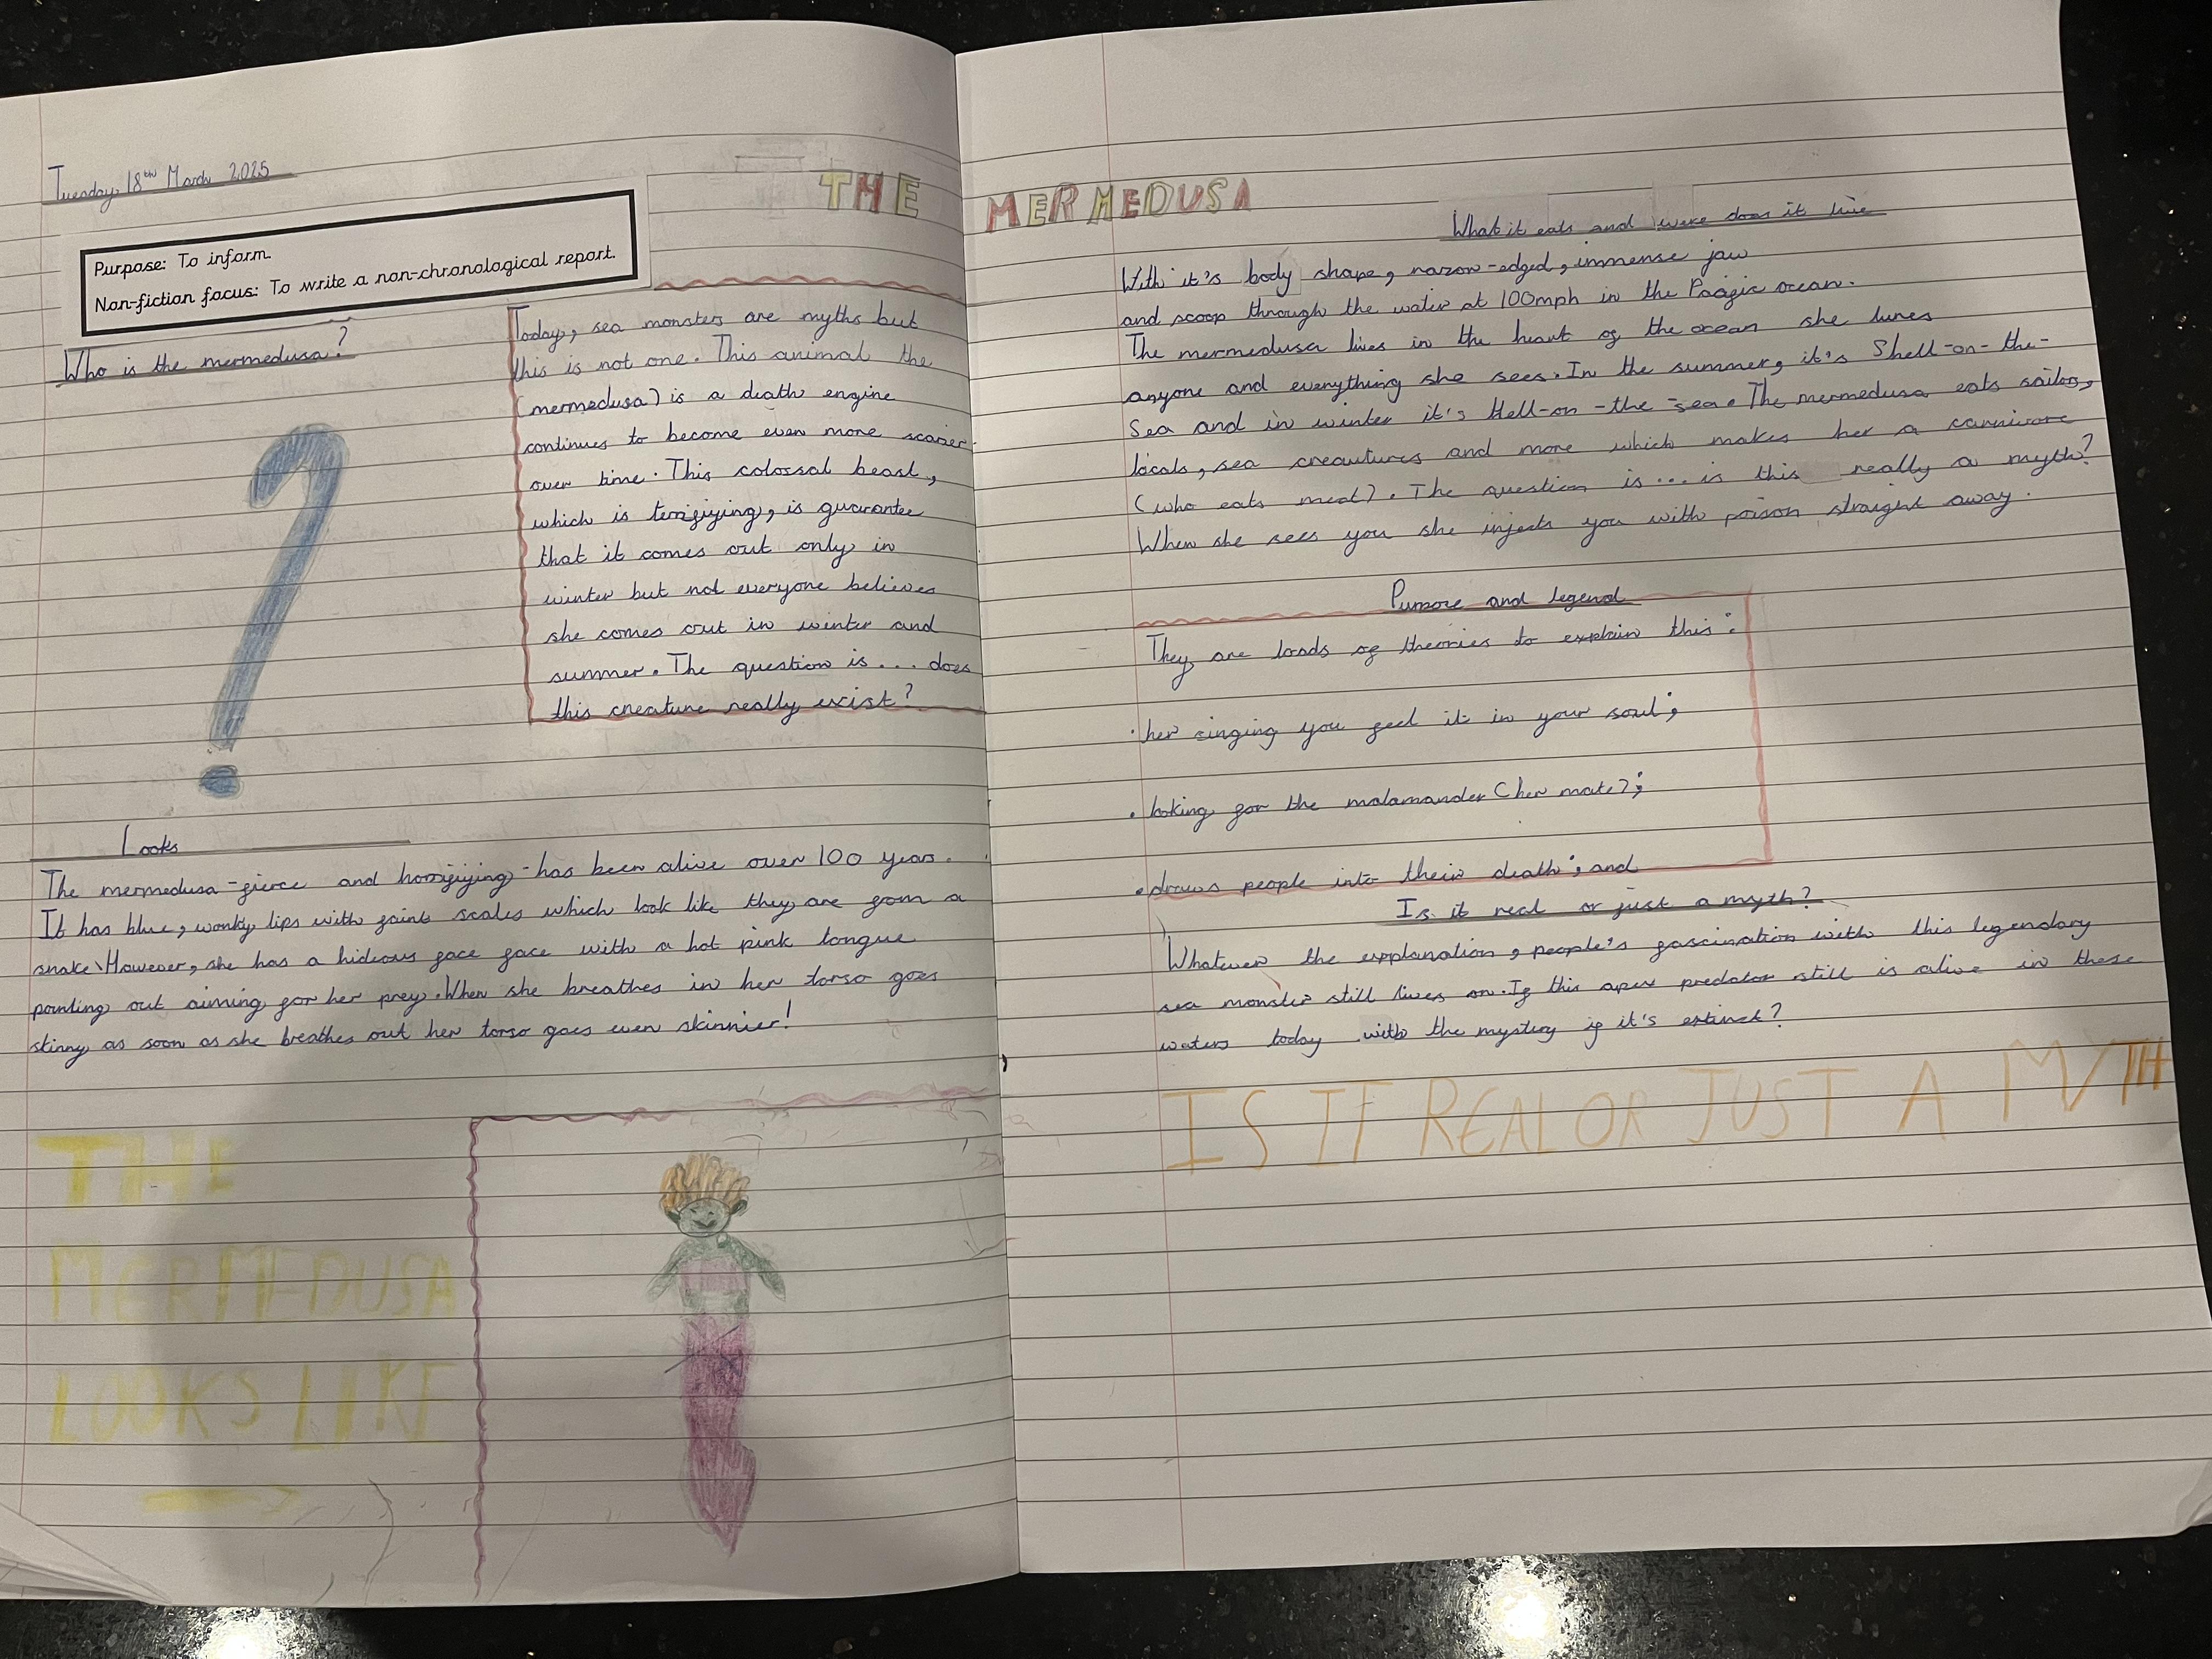 Tuesday, 18th March 2025
Purpose: To inform.
Non-fiction focus: To write a non-chronological report.
THE MERMEDUSA
Who is the mermedusa?
Today, sea monsters are myths but
this is not one. This animal the
(mermedusa) is a death engine
continues to become even more scarier
over time. This colossal beast,
which is terrifying, is guarantee
that it comes out only in
winter but not everyone believes
she comes out in winter and
summer. The question is ... does
this creature really exist?
Looks
The mermedusa -fierce and horrifying- has been alive over 100 years.
It has blue, wonky lips with faint scales which look like they are from a
snake. However, she has a hideous face face with a hot pink tongue
pointing out aiming for her prey. When she breathes in her torso goes
skinny as soon as she breathes out her torso goes even skinnier!
THE
MERMEDUSA
LOOKS LIKE
What it eats and were does it live
With it's body shape, razor-edged, immense jaw
and scoop through the water at 100mph in the Pacific ocean.
The mermedusa lives in the heart of the ocean she lures
anyone and everything she sees. In the summer, it's Shell-on-the-
Sea and in winter it's Hell-on-the-sea. The mermedusa eats sailors,
locals, sea creautures and more which makes her a carnivore
(who eats meat). The question is ... is this really a myth?
When she sees you she injects you with poison straight away.
Purpose and legend
They are loads of theories to explain this:
• her singing you feel it in your soul;
• looking for the malamander (her mate);
• draws people into their death; and
Is it real or just a myth?
Whatever the explanation, people's fascination with this legendary
sea monster still lives on. If this apex predator still is alive in these
waters today with the mystery if it's extinct?
IS IT REAL OR JUST A MYTH